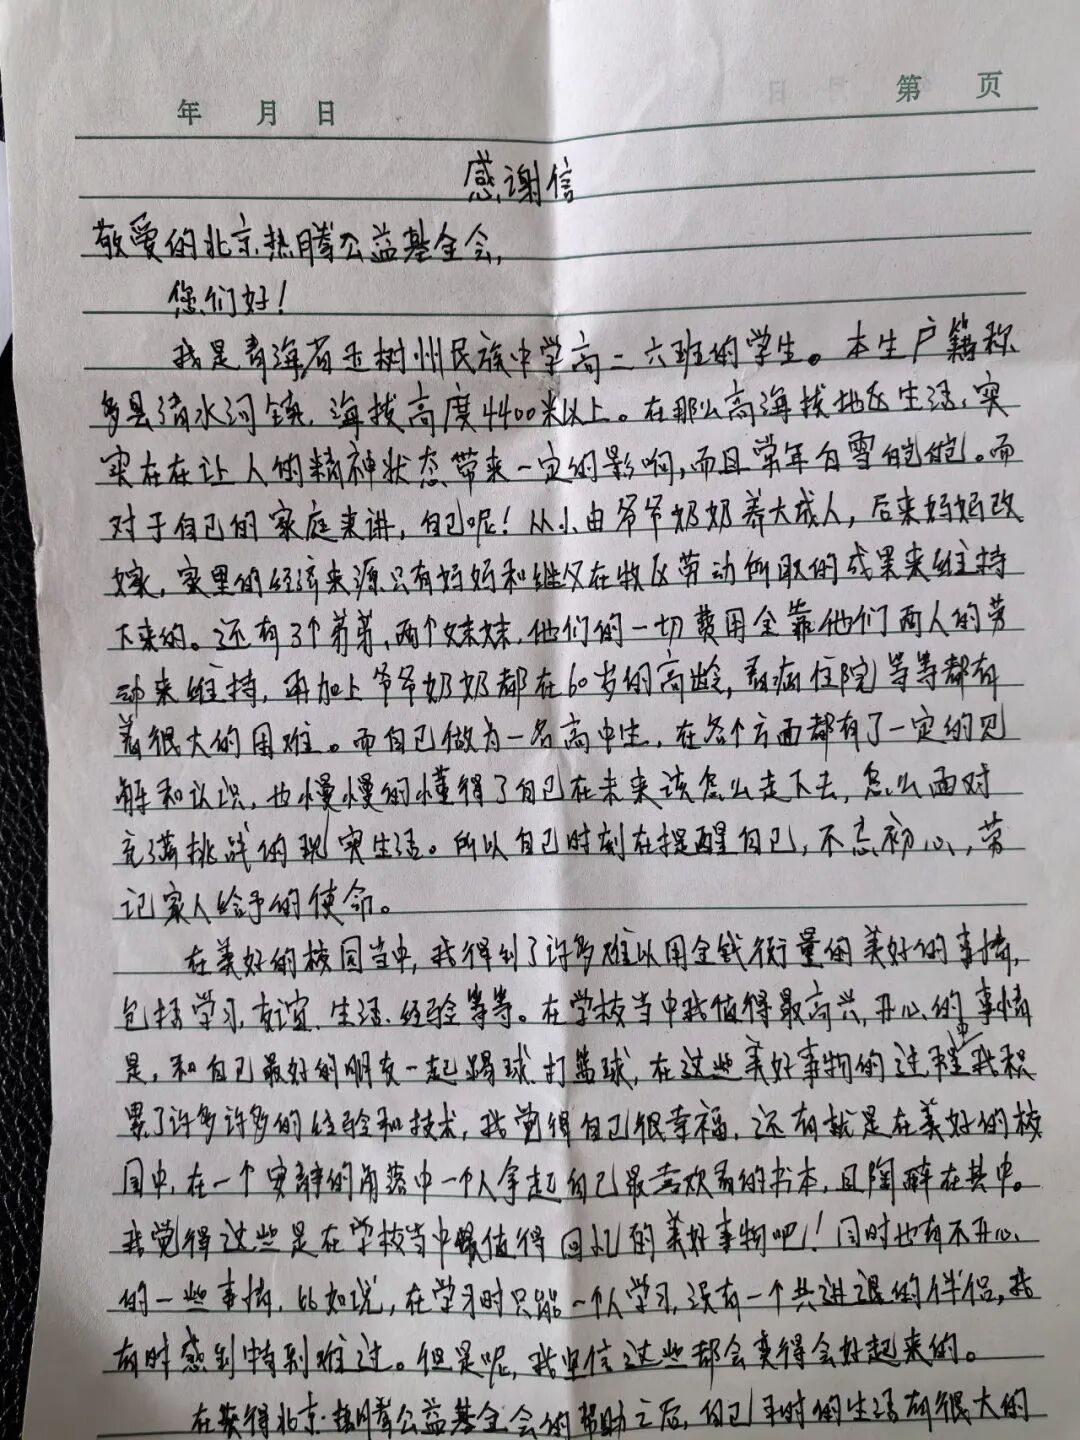 年 月 日 第 页
感谢信
敬爱的北京热腾公益基金会,
您们好!
我是青海省玉树州民族中学高二六班的学生。本生户籍称
多县清水河镇,海拔高度4400米以上。在那么高海拔地区生活,实
实在在让人的精神状态带来一定的影响,而且常年白雪皑皑。而
对于自己的家庭来讲,自己呢!从小由爷爷奶奶养大成人,后来妈妈改
嫁,家里的经济来源只有妈妈和继父在牧区劳动所取的成果来维持
下来的。还有3个弟弟,两个妹妹,他们的一切费用全靠他们两人的劳
动来维持,再加上爷爷奶奶都在60岁的高龄,看病住院等等都有
着很大的困难。而自己做为一名高中生,在各个方面都有了一定的见
解和认识,也慢慢的懂得了自己在未来该怎么走下去,怎么面对
充满挑战的现实生活。所以自己时刻在提醒自己,不忘初心,劳
记家人给予的使命。
在美好的校园当中,我得到了许多难以用金钱衡量的美好的事情,
包括学习、友谊、生活、经验等等。在学校当中我值得最高兴,开心的事情
是,和自己最好的朋友一起踢球、打篮球,在这些美好事物的过程中我积
累了许多许多的经验和技术,我觉得自己很幸福,还有就是在美好的校
园中,在一个安静的角落中一个人拿起自己最喜欢看的书本,且陶醉在其中。
我觉得这些是在学校当中最值得回忆的美好事物吧!同时也有不开心
的一些事情,比如说,在学习时只能一个人学习,没有一个共进退的伴侣,我
有时感到特别难过。但是呢,我坚信这些都会变得会好起来的。
在获得北京热腾公益基金会的帮助之后,自己平时的生活有很大的